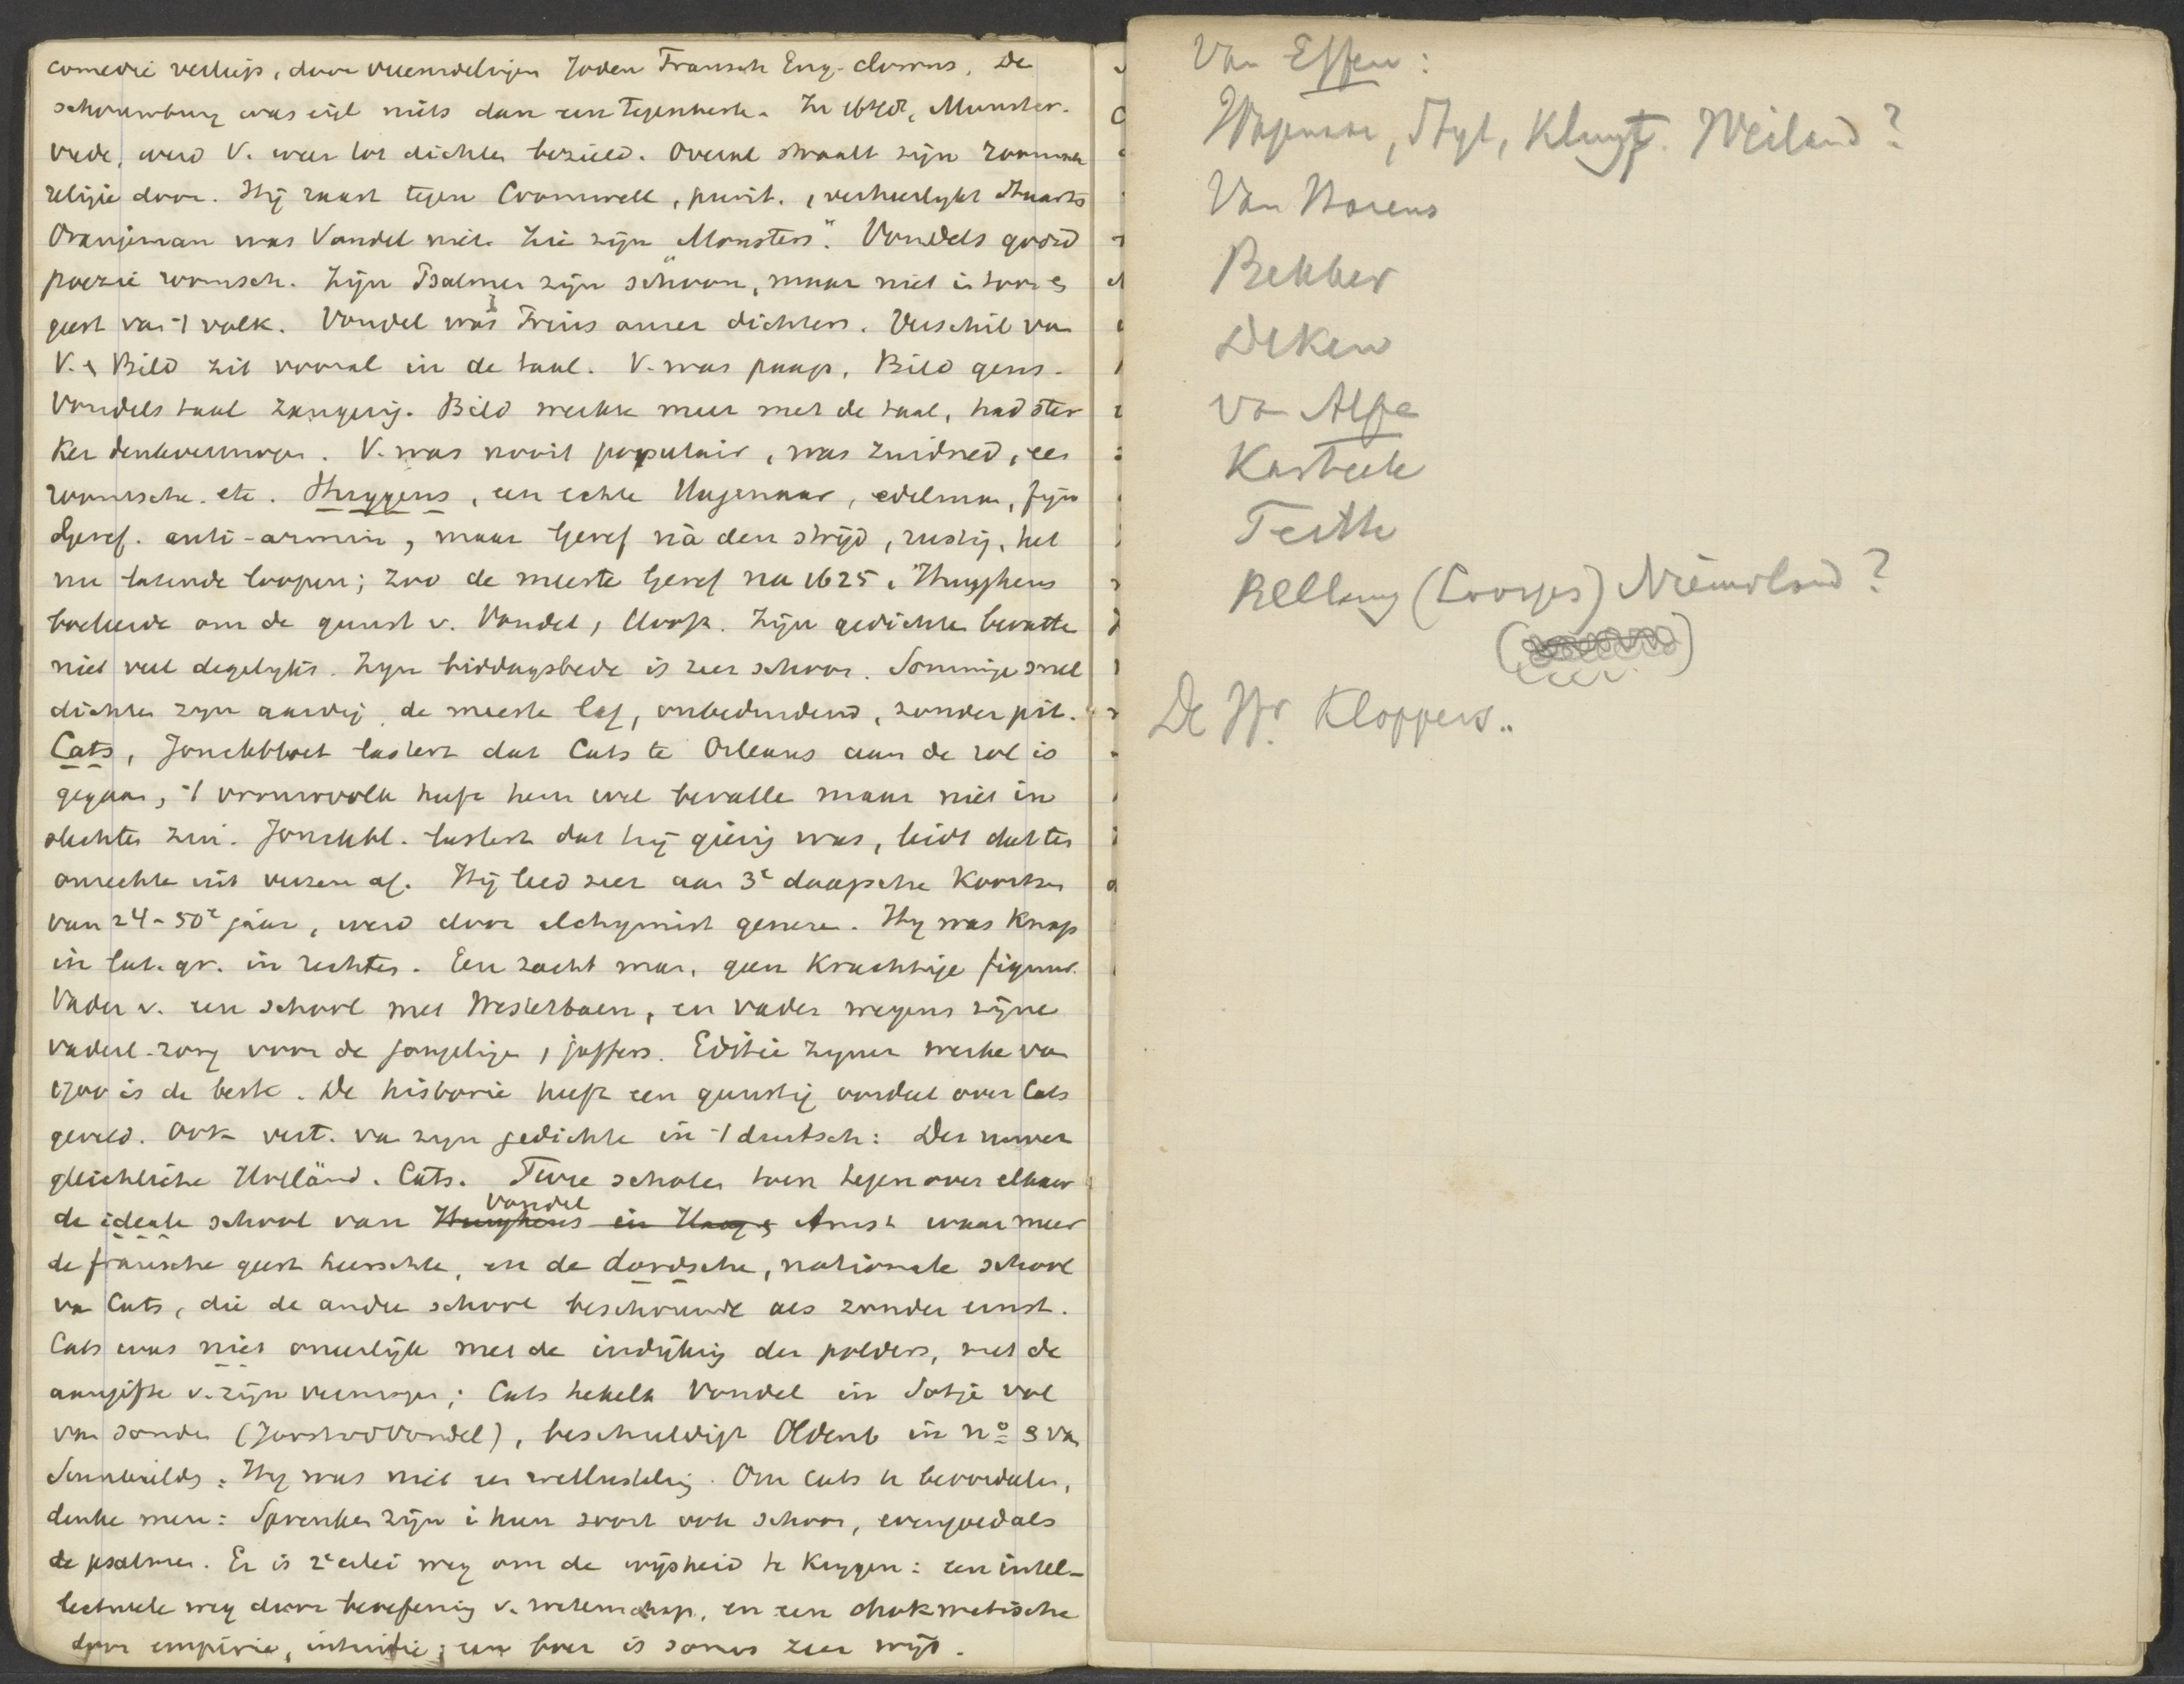 comedie verliep, door vreemdelingen Joden Fransch Eng. clowns. De
schouwburg was niets dan een tegenkerk. In 1648, Munster.
vrede, werd V. weer tot dichten bezield. Overal straalt zijn roomsch
religie door. Hij raast tegen Cromwell, purit., verheerlykt Stuarts
Oranjeman was Vondel niet. Zie zijn "Monsters". Vondels goed
poezie roomsch. Zijn Psalmen zijn schoon, maar niet in toon &
geest van 't volk. Vondel was Prins onzer dichters. Verschil van
V. & Bild zit vooral in de taal. V. was paap, Bild geus.
Vondels taal zangerig. Bild werkte meer met de taal, had ster
ker denkvermogen. V. was nooit populair, was Zuidned, een
roomsche. etc. Huygens, een echte Hagenaar, edelman, fijn
Geref. anti-armin, maar Geref nà den strijd, rustig, het
nu latende loopen; zoo de meeste Geref na 1625. Huyghens
boeleerde om de gunst v. Vondel, Hooft. Zijn gedichten bevatten
niet veel degelyks. Zyn biddagsbede is zeer schoon. Sommige snel
dichten zyn aardig, de meeste laf, onbeduidend, zonder pit.
Cats, Jonckbloet lastert dat Cats te Orleans aan de rol is
gegaan, 't vrouwvolk heeft hem wel bevallen maar niet in
slechten zin. Jonckbl. lastert dat hij gierig was, leidt dat ten
onrechte uit verzen af. Hij leed zeer aan 3e daagsche koorts
van 24-50e jaar, werd door alchymist genezen. Hy was knap
in lat. gr. in rechten. Een zacht man, geen krachtige figuur.
Vader v. een school met Westerbaen, en vader wegens zijne
vaderl. zorg voor de jongelingen, juffers. Editie zyner werken van
1700 is de beste. De historie heeft een gunstig oordeel over Cats
geveld. Ook vert. van zyn gedichten in 't duitsch: Der unver
gleichliche Holländ. Cats. Twee scholen toen tegenover elkaar
de ideale school van Huyghens in Haag & Vondel Amst waar meer
de fransche geest heerschte, en de dordsche, nationale school
van Cats, die de andere school beschouwde als zonder ernst.
Cats was niet oneerlijk met de indijking der polders, met de
aangifte v. zijn vermogen; Cats hekelt Vondel in Sotje vol
van sonden (Joost vd Vondel), beschuldigt Oldenb in no 9 van
Hy was niet een wellusteling. Om Cats te beoordeelen,
denke men: Spreuken zijn in hun soort ook schoon, evengoed als
de psalmen. Er is 2erlei weg om de wijsheid te krygen: een intel-
lectueele weg door beoefening v. wetenschap, en een chokmatische
door empirie, intuitie; een boer is soms zeer wijs.
Van Effen:
Wagenaar, Styl, Kluyt. Weiland?
Van Harens
Bekker
Deken
van Alfe
Kasteele
Feith
Bellamy (Loosjes) Nieuwland?
De Hr. Kloppers..